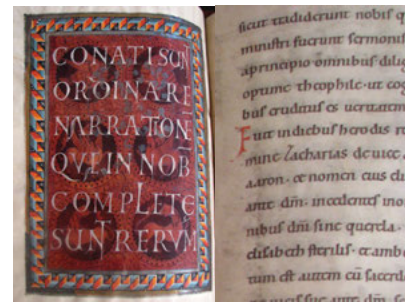 CONATI SUN
ORDINARE
NARRATIONĒ
QVE IN NOB
COMPLETE
SUNT RERVM
sicut tradiderunt nobis q
ministri fuerunt sermonis
a principio omnibus dilig
optime theophile · ut cog
bus eruditus es ueritatem
Fuit in diebus herodis re
mine Zacharias de uice
aaron · et nomen eius eli
ante dm̄ · incedentes in o
nibus dn̄i sine querela ·
elisabeth sterilis · et ambo
tum est autem cū sacerdo